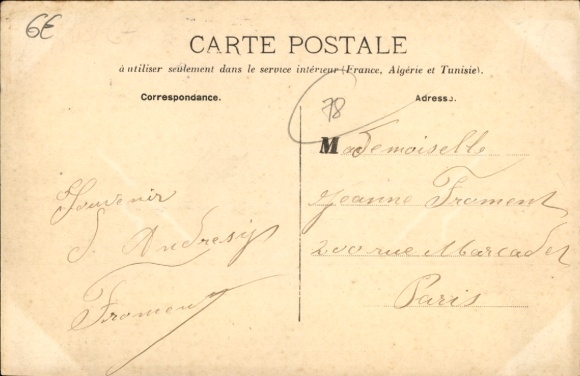 6€
CARTE POSTALE
à utiliser seulement dans le service intérieur (France, Algérie et Tunisie).
Correspondance.
Adresse.
78
Mademoiselle
Jeanne Froment
200 rue Marcadet
Paris
Souvenir
d'Andresy
Froment